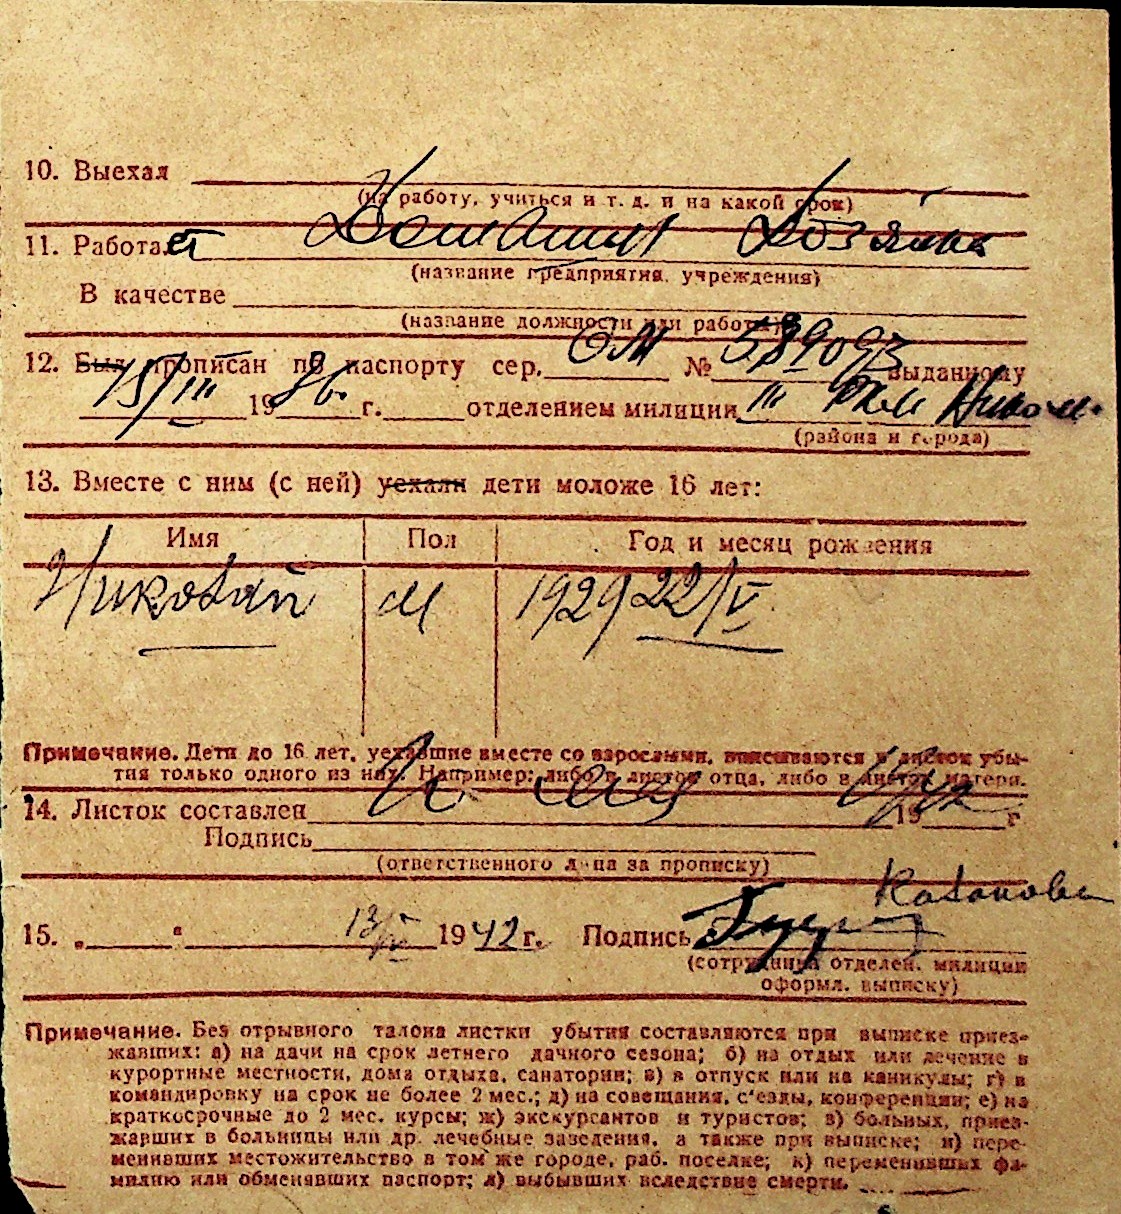 10. Выехал
(на работу, учиться и т. д. и на какой срок)
11. Работает Домашняя хозяйка
(название предприятия, учреждения)
В качестве
(название должности или работы)
12. Был прописан по паспорту сер. ОМ № 589093 выданному
15/III 1936. г. отделением милиции III
(района и города)
13. Вместе с ним (с ней) уехали дети моложе 16 лет:
Имя Пол Год и месяц рождения
Николай М 1929 22/V
Примечание. Дети до 16 лет, уехавшие вместе со взрослыми, вписываются в листок убы-
тия только одного из них. Например: либо в листок отца, либо в листок матери.
14. Листок составлен 19 г
Подпись
(ответственного лица за прописку)
15. „ “ 13/IV 1942 г. Подпись
(сотрудника отделен. милиции
оформл. выписку)
Примечание. Без отрывного талона листки убытия составляются при выписке приез-
жавших: а) на дачи на срок летнего дачного сезона; б) на отдых или лечение в
курортные местности, дома отдыха, санатории; в) в отпуск или на каникулы; г) в
командировку на срок не более 2 мес.; д) на совещания, с'езды, конференции; е) на
краткосрочные до 2 мес. курсы; ж) экскурсантов и туристов; з) больных, приез-
жавших в больницы или др. лечебные заведения, а также при выписке; и) пере-
менивших местожительство в том же городе, раб. поселке; к) переменивших фа-
милию или обменявших паспорт; л) выбывших вследствие смерти.